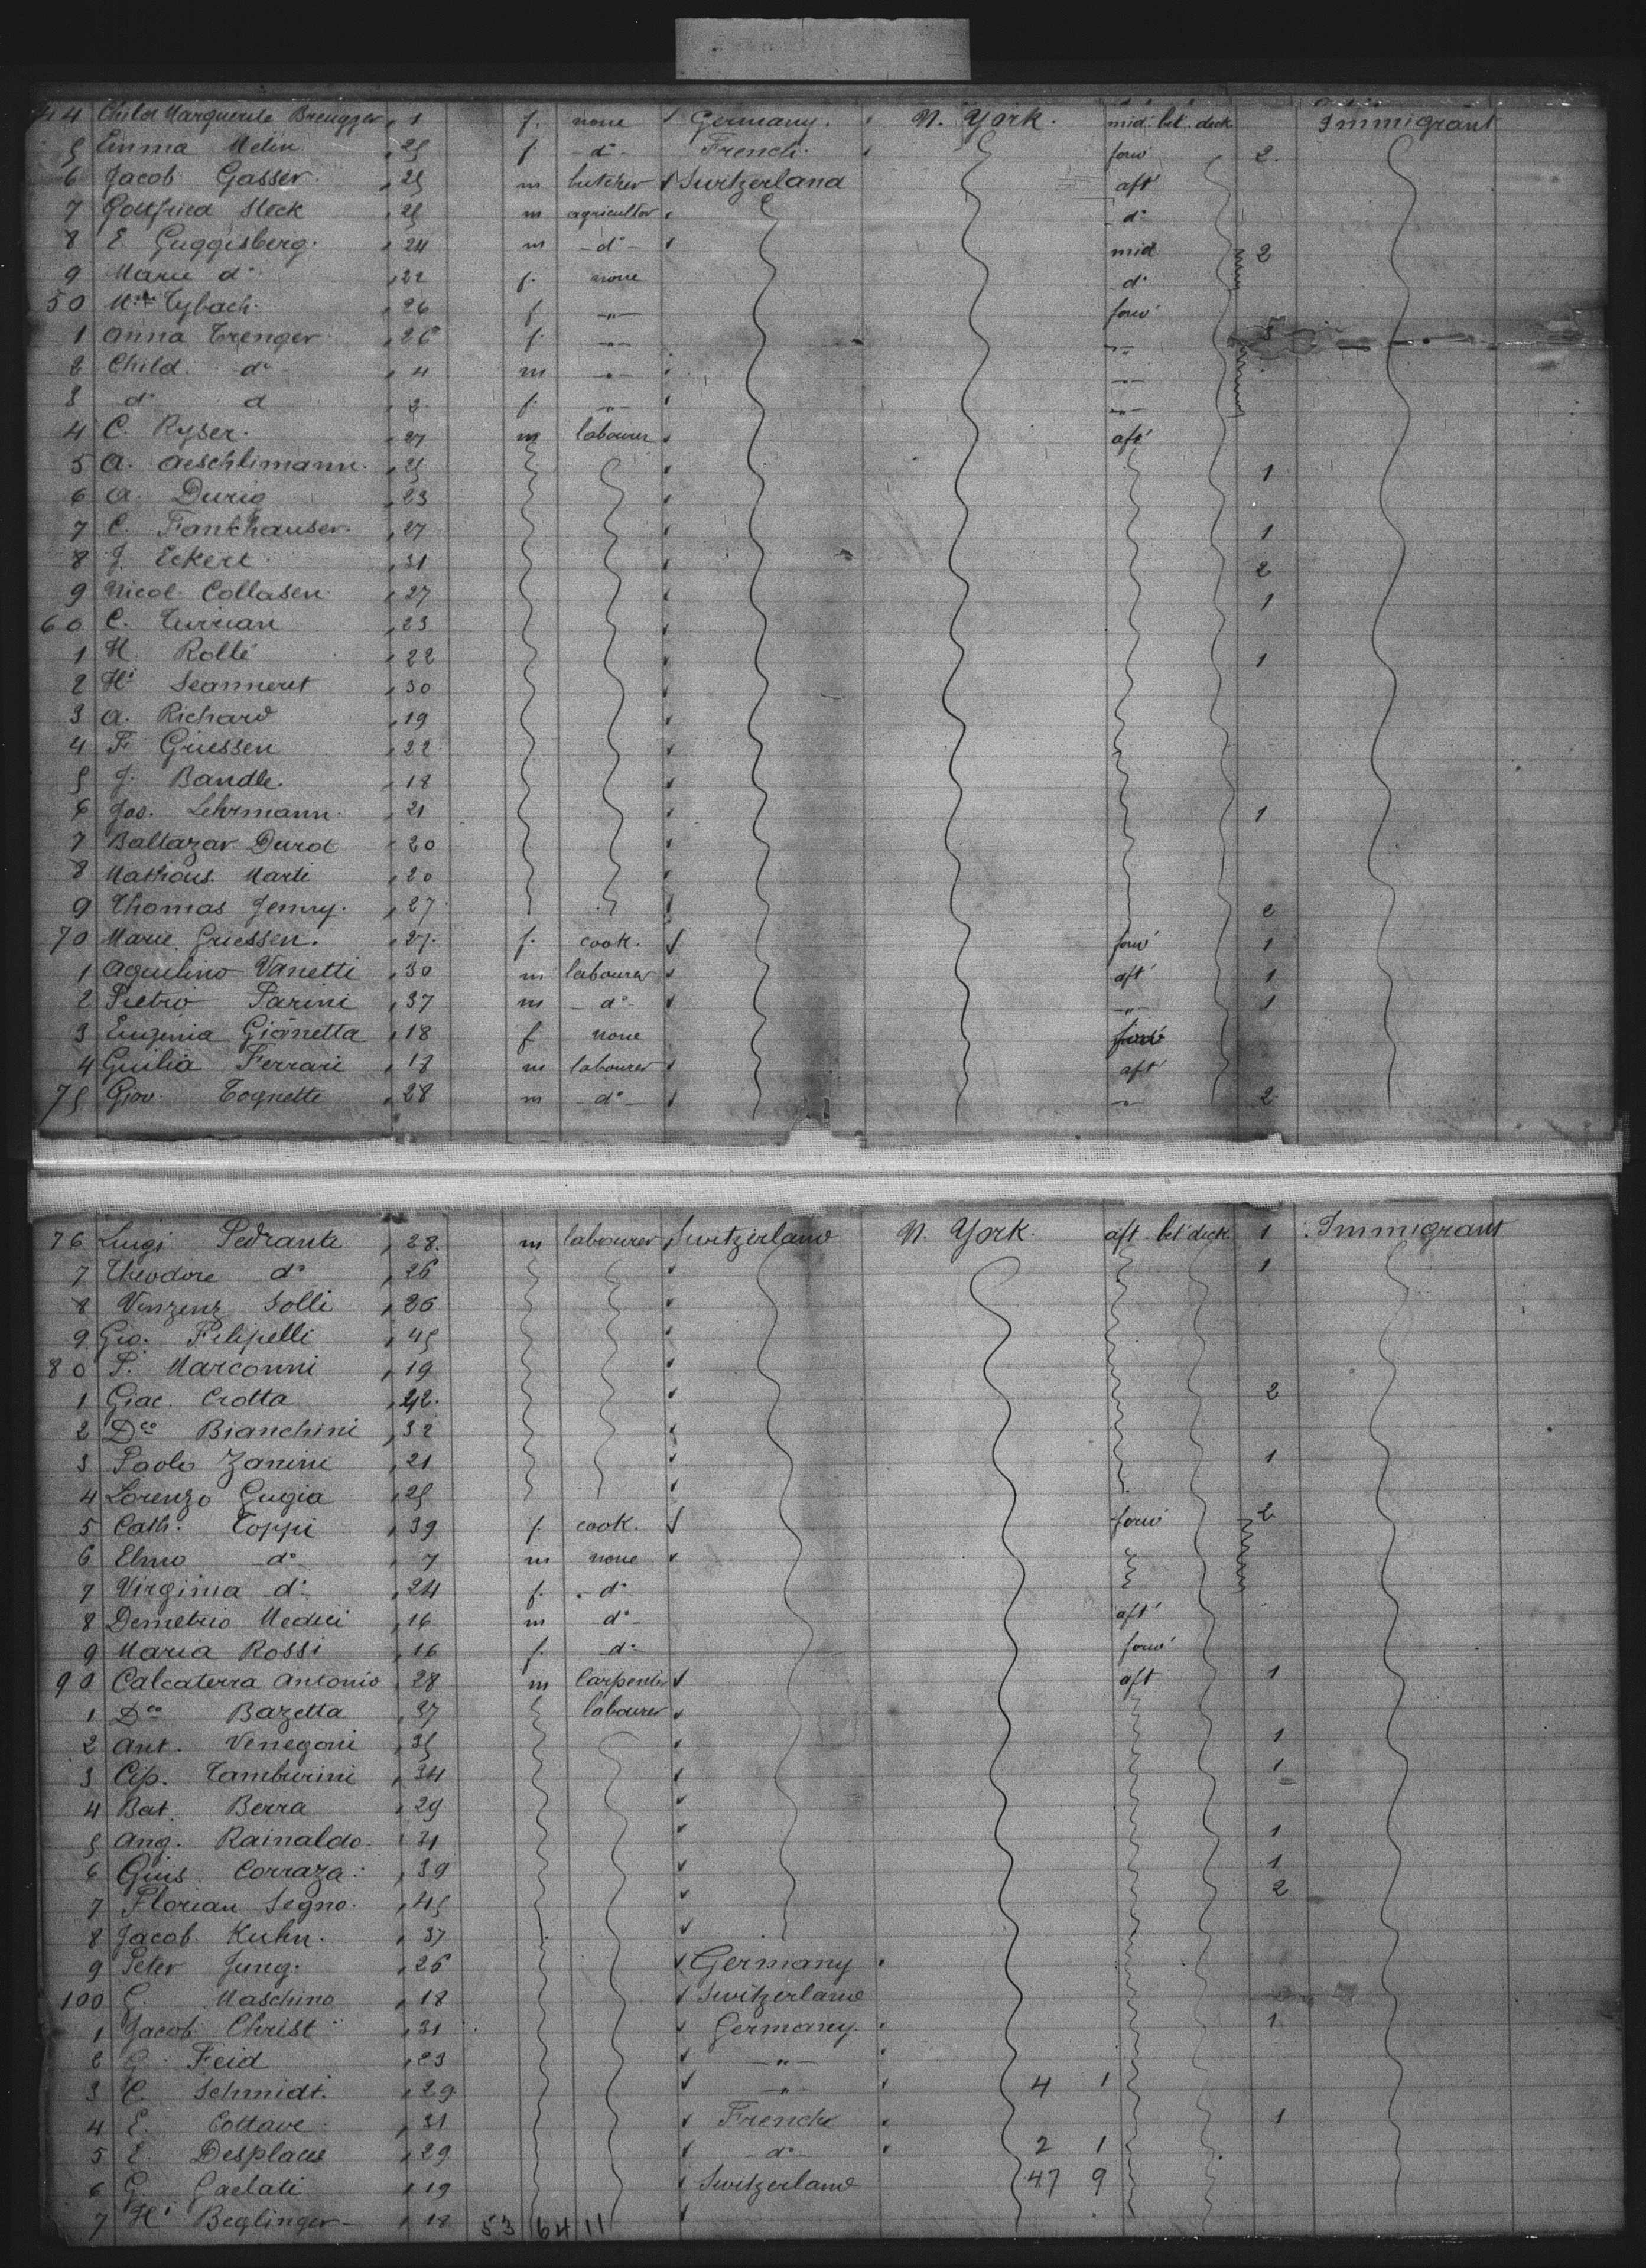 44 Child Marguerite Brengger 1 f. none Germany. N. York. mid. bet. deck Immigrant
5 Emma Melin 25 f. d° French. forw' 2
6 Jacob Gasser. 25 m butcher Switzerland aft'
7 Gottfried Steck 25 m agricultor d°
8 E. Guggisberg. 24 m d° mid 2
9 Marie d° 22 f. none d°
50 Tybach. 26 f " forw'
1 Anna Trenger 26 f. " "
2 Child. d° 4 m " "
3 d° d 2 f. " "
4 C. Ryser. 27 m labourer aft'
5 A. Aeschlimann. 25 1
6 A. Durig 23
7 C. Fankhauser. 27 1
8 J. Eckert 31 2
9 Nicol. Collasen 27 1
60 C. Turrian 23
1 H. Rollé 22 1
2 Hi Jeanneret 30
3 A. Richard 19
4 F. Griessen 22
5 J. Bandle. 18
6 Jos. Lehrmann. 21 1
7 Baltazar Durot 20
8 Mathous. Marti 20
9 Thomas Jenny. 27 2
70 Marie Griessen. 27. f. cook. forw' 1
1 Aquilino Vanetti 30 m labourer aft' 1
2 Pietro Parini 37 m d° " 1
3 Eugenia Gianetta 18 f none forw'
4 Guilia Ferrari 18 m labourer aft'
75 Giov. Tognetti 28 m d° " 2
76 Luigi Pedranti 28. m labourer Switzerland N. York. aft bet' deck 1 Immigrant
7 Theodore d° 26 1
8 Vinzenz Solli 26
9 Gio. Filipelli 45
80 P. Marconni 19
1 Giac. Crotta 42. 2
2 Dco Bianchini 32
3 Paolo Zanini 21 1
4 Lorenzo Gugia 25
5 Cath. Toppi 39 f. cook. forw' 2
6 Elmo d° 7 m none
7 Virginia d° 24 f. d°
8 Demetrio Medici 16 m d° aft'
9 Maria Rossi 16 f. d° forw'
90 Calcaterra Antonio 28 m Carpenter aft 1
1 Dco Bazetta 37 labourer
2 Ant. Venegoni 35 1
3 Cip. Tamburini 34 1
4 Bat. Berra 29
5 Ang. Rainaldo. 31 1
6 Guis. Corraza. 39 1
7 Florian Segno. 45 2
8 Jacob Kuhn. 37
9 Peter Jung. 26 Germany
100 G. Maschino 18 Switzerland
1 Jacob Christ 31 Germany. 1
2 G. Feid 23 "
3 C. Schmidt. 29 " 4 1
4 E. Cottave 31 French 1
5 E. Desplaces 29 d° 2 1
6 G. Gaelati 19 Switzerland 47 9
7 Hi Beglinger 18 53 64 11